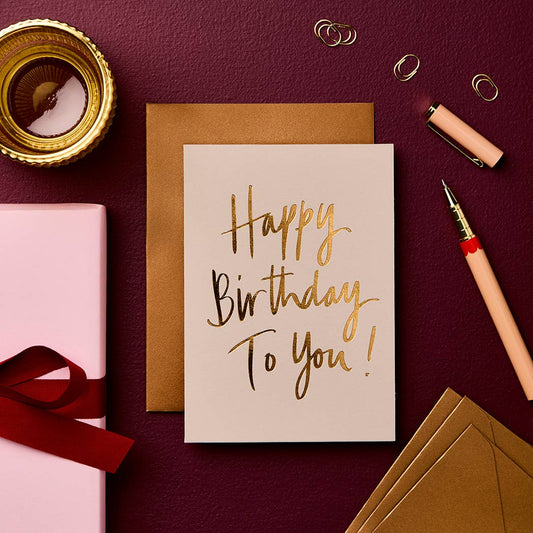 Happy
Birthday
To You!